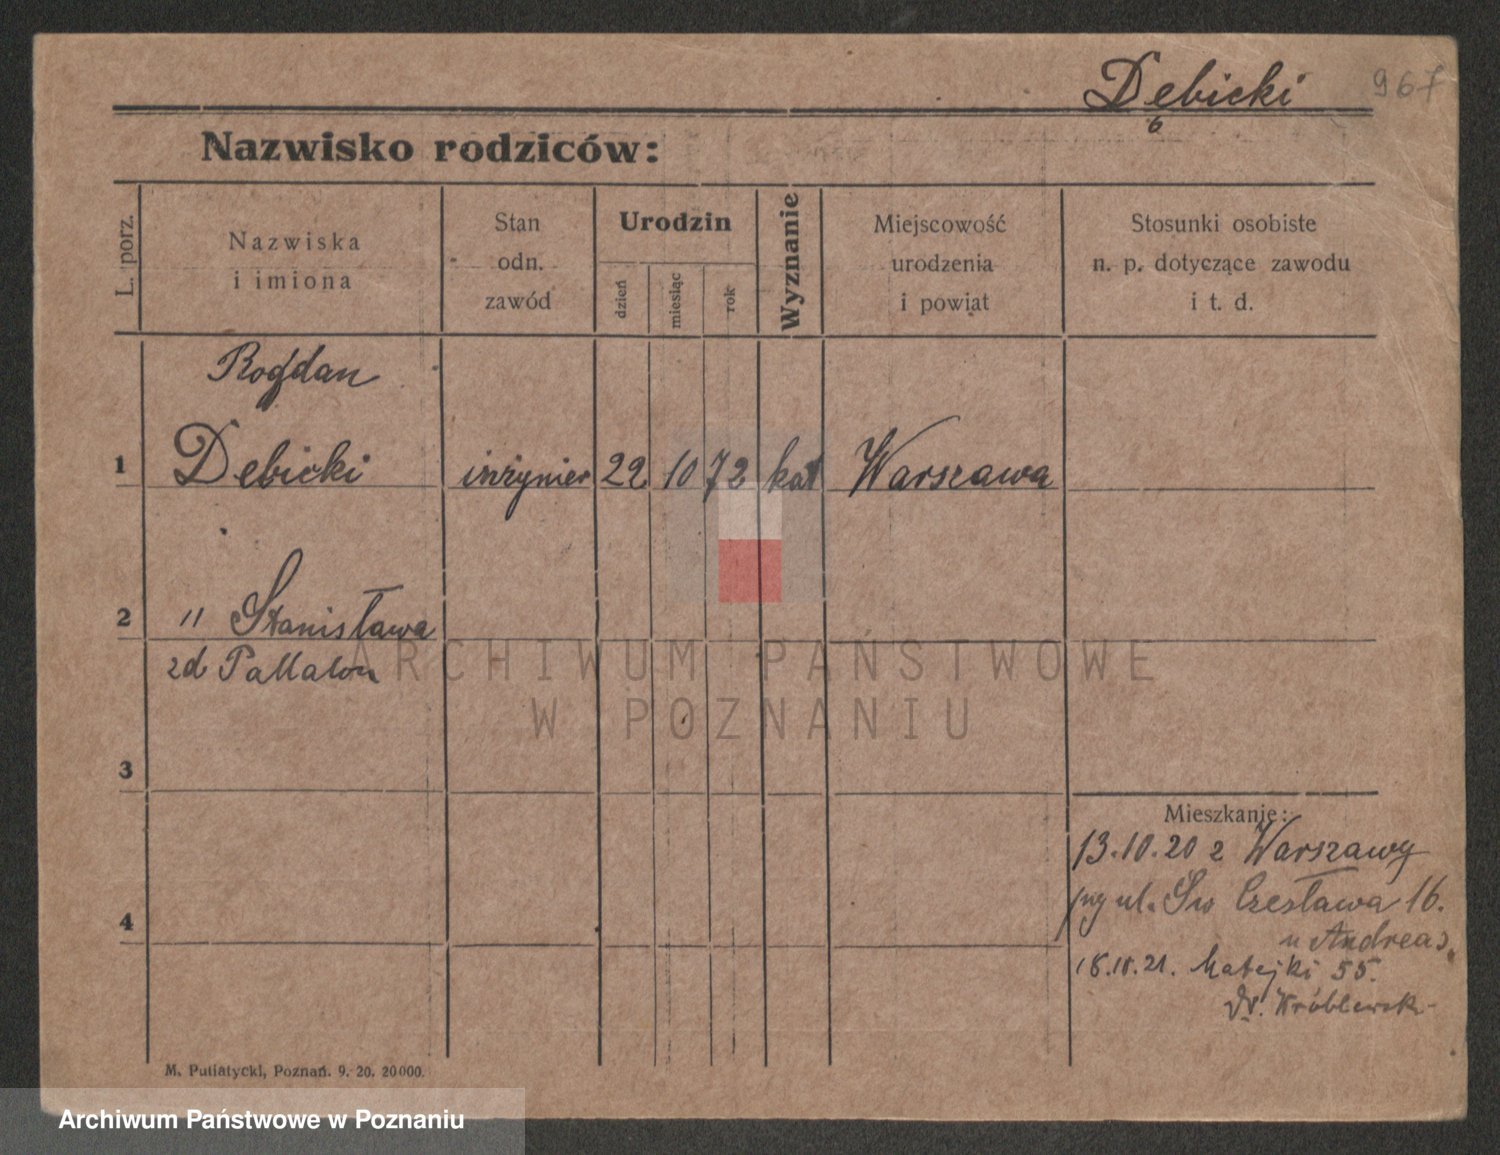 Debicki 967
6
Nazwisko rodziców:
L. porz.
Nazwiska
i imiona
Stan
odn.
zawód
Urodzin
dzień
miesiąc
rok
Wyznanie
Miejscowość
urodzenia
i powiat
Stosunki osobiste
n. p. dotyczące zawodu
i t. d.
Bogdan
1 Debicki inżynier 22 10 72 kat Warszawa
2 " Stanisława
zd
ARCHIWUM PAŃSTWOWE
W POZNANIU
3
Mieszkanie:
13.10.20 z Warszawy
ul. Św Czesława 16.
4
u Andreas
21. Matejki 55.
Dr. Wróblewski
M. Putiatycki, Poznań. 9. 20. 20000.
Archiwum Państwowe w Poznaniu